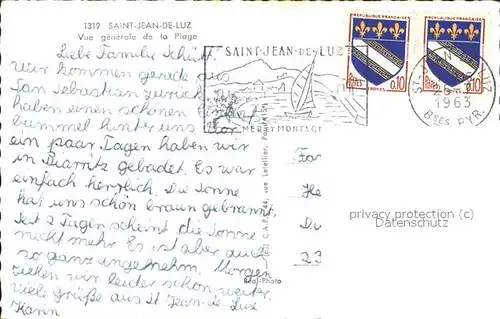 1319 SAINT-JEAN-DE-LUZ
Vue générale de la Plage
Liebe Familie Schütt!
wir kommen gerade aus
San Sebastian zurück
haben einen schönen
bummel hinter uns. Vor
ein paar Tagen haben wir
in Biarritz gebadet. Es war
einfach herrlich. Die Sonne
hat uns schön braun gebrannt.
Seit 2 Tagen scheint die Sonne
nicht mehr. Es ist aber auch
so ganz angenehm. Morgen
ziehen wir leider schon weiter.
Viele grüße aus St Jean de Luz
Karin
SAINT-JEAN-DE-LUZ
MER ET MONTAGNE
REPUBLIQUE FRANÇAISE
POSTES
0,10
TROYES
REPUBLIQUE FRANÇAISE
POSTES
0,10
1963
BSES PYR.
C.A.P. 44, rue Letellier,
Réal-Photo
Fa
He
Du
23
privacy protection (c)
Datenschutz